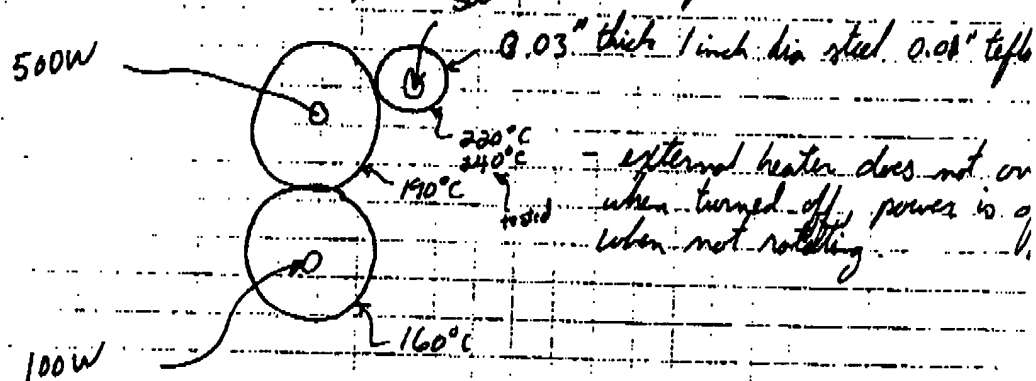 500W
0.03" thick 1 inch dia steel 0.01"
220°C
240°C
tested
190°C
- external heater does not
when turned off, power is
when not rotating.
160°C
100W